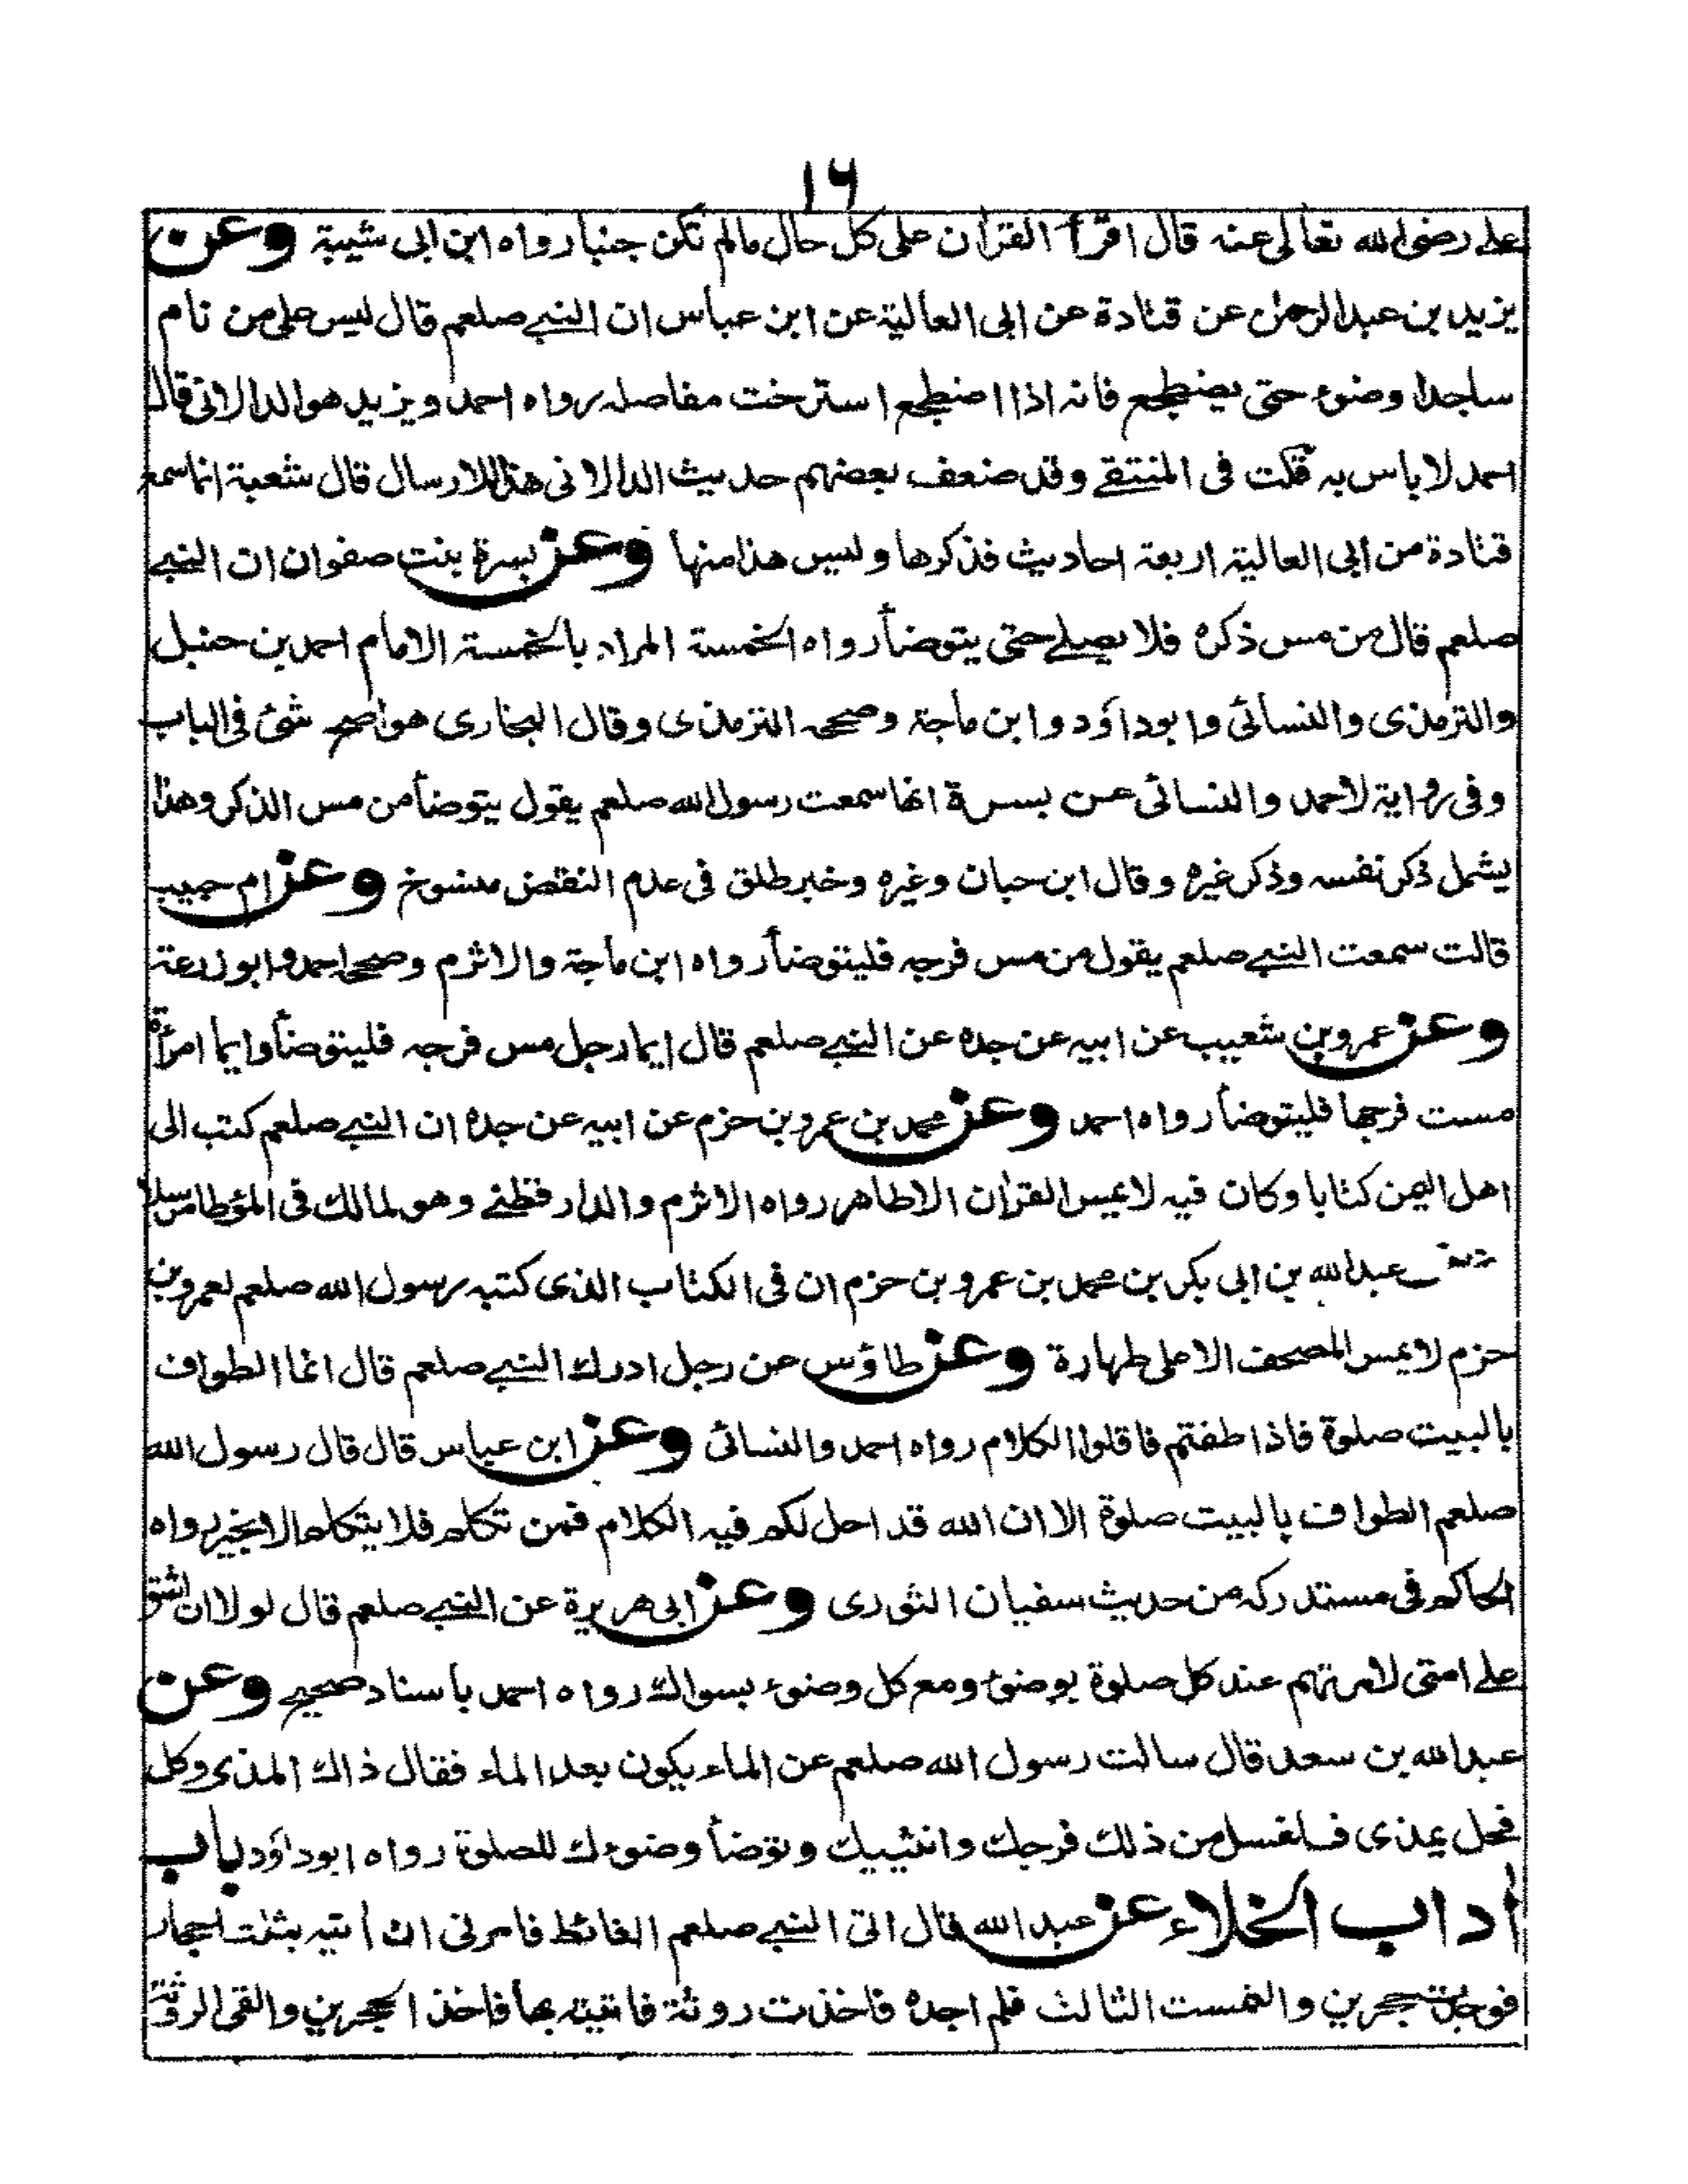 ١٦
على رضى الله تعالى عنه قال اقرأ القرآن على كل حال مالم تكن جنبا رواه ابن ابى شيبة وعن
يزيد بن عبد الرحمٰن عن قتادة عن ابى العالية عن ابن عباس ان النبى صلعم قال ليس على من نام
ساجدا وضوء حتى يضطجع فانه اذا اضطجع استرخت مفاصله رواه احمد ويزيد هو الدالانى قال
احمد لا باس به قلت فى المنتقى وقد ضعف بعضهم حديث الدالانى هذا للارسال قال شعبة انما سمع
قتادة من ابى العالية اربعة احاديث فذكرها وليس هذا منها وعن بسرة بنت صفوان ان النبى
صلعم قال من مس ذكره فلا يصلى حتى يتوضأ رواه الخمسة المراد بالخمسة الامام احمد بن حنبل
والترمذى والنسائى وابوداؤد وابن ماجة وصححه الترمذى وقال البخارى هو اصح شئ فى الباب
وفى رواية لاحمد والنسائى عن بسرة انها سمعت رسول الله صلعم يقول يتوضأ من مس الذكر وهذا
يشمل ذكر نفسه وذكر غيره وقال ابن حبان وغيره وخبر طلق فى عدم النقض منسوخ وعن ام حبيبه
قالت سمعت النبى صلعم يقول من مس فرجه فليتوضأ رواه ابن ماجة والاثرم وصححه احمد وابو زرعة
وعن عمرو بن شعيب عن ابيه عن جده عن النبى صلعم قال ايما رجل مس فرجه فليتوضأ وايما امرأة
مست فرجها فليتوضأ رواه احمد وعن محمد بن عمرو بن حزم عن ابيه عن جده ان النبى صلعم كتب الى
اهل اليمن كتابا وكان فيه لا يمس القرآن الا طاهر رواه الاثرم والدار قطنى وهو لمالك فى المؤطا مرسلا
عبد الله بن ابى بكر بن محمد بن عمرو بن حزم ان فى الكتاب الذى كتبه رسول الله صلعم لعمرو بن
حزم لا يمس المصحف الا على طهارة وعن طاؤس عن رجل ادرك النبى صلعم قال انما الطواف
بالبيت صلوة فاذا طفتم فاقلوا الكلام رواه احمد والنسائى وعن ابن عباس قال قال رسول الله
صلعم الطواف بالبيت صلوة الا ان الله قد احل لكم فيه الكلام فمن تكلم فلا يتكلم الا بخير رواه
الحاكم فى مستدركه من حديث سفيان الثورى وعن ابى هريرة عن النبى صلعم قال لولا ان اشق
على امتى لامرتهم عند كل صلوة بوضوء ومع كل وضوء بسواك رواه احمد باسناد صحيح وعن
عبد الله بن سعد قال سالت رسول الله صلعم عن الماء يكون بعد الماء فقال ذاك المذى وكل
فحل يمذى فاغسل من ذلك فرجك وانثييك وتوضأ وضوءك للصلوة رواه ابوداؤد باب
آداب الخلاء عن عبد الله قال اتى النبى صلعم الغائط فامرنى ان أتيه بثلٰث احجار
فوجدت حجرين والتمست الثالث فلم اجده فاخذت روثة فاتيته بها فاخذ الحجرين والقى الروثة